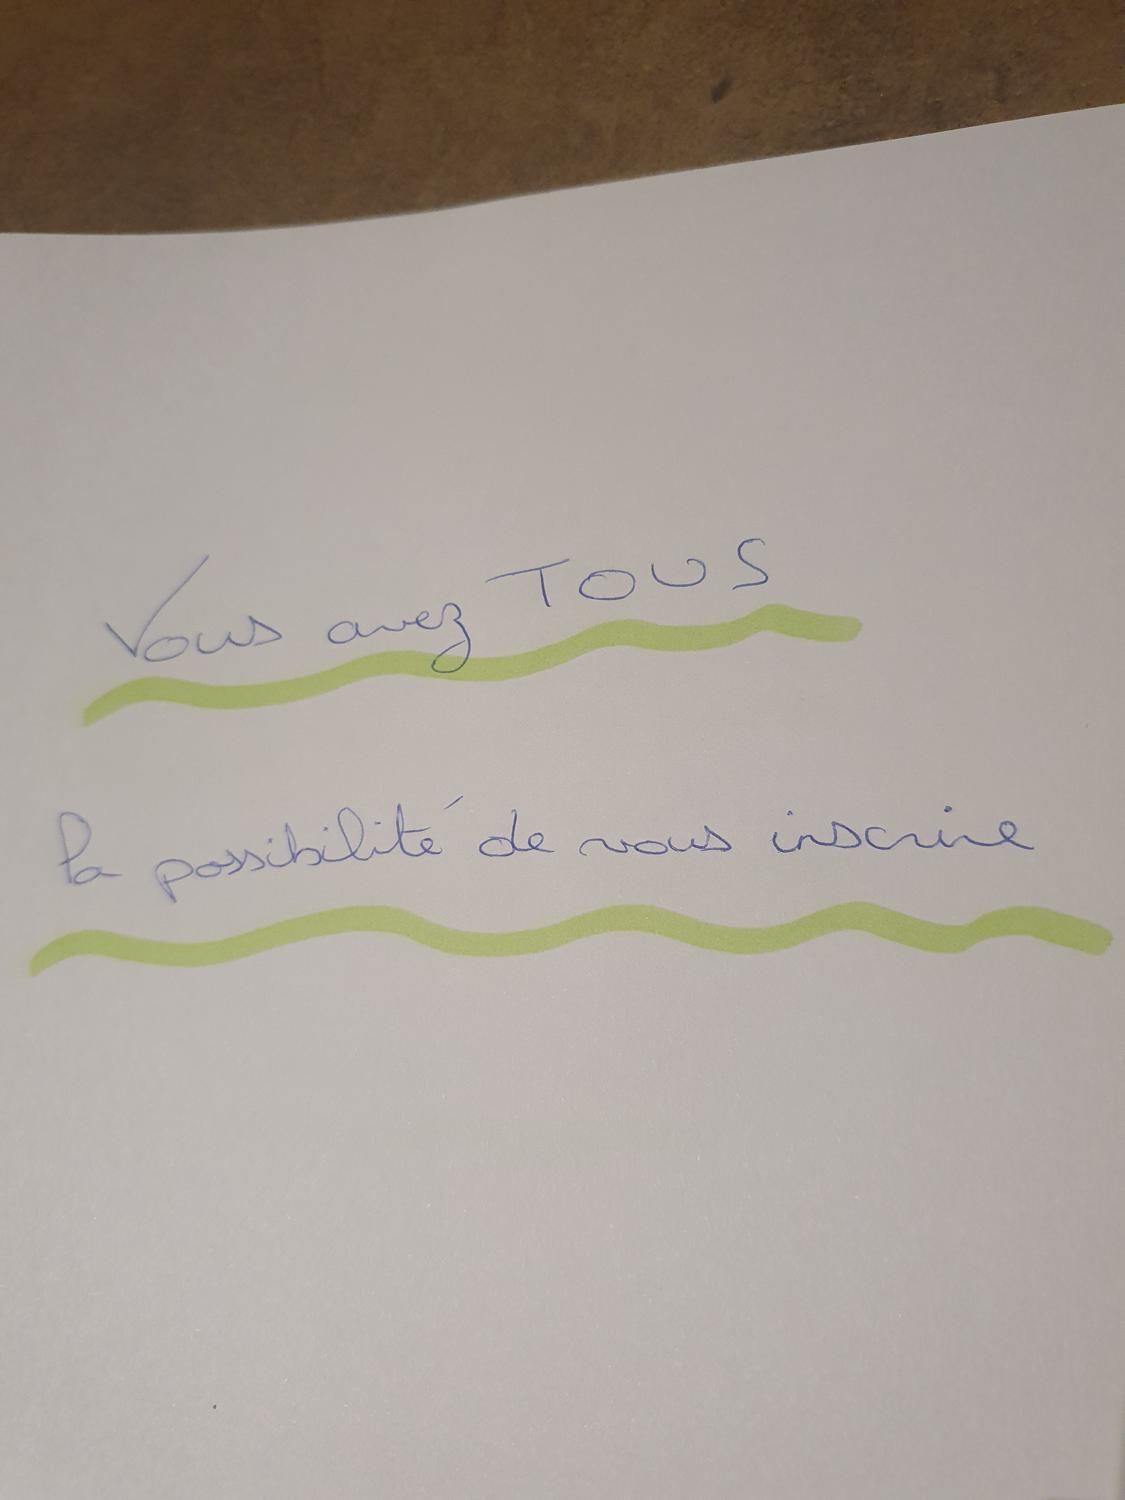 Vous avez TOUS
la possibilité de vous inscrire